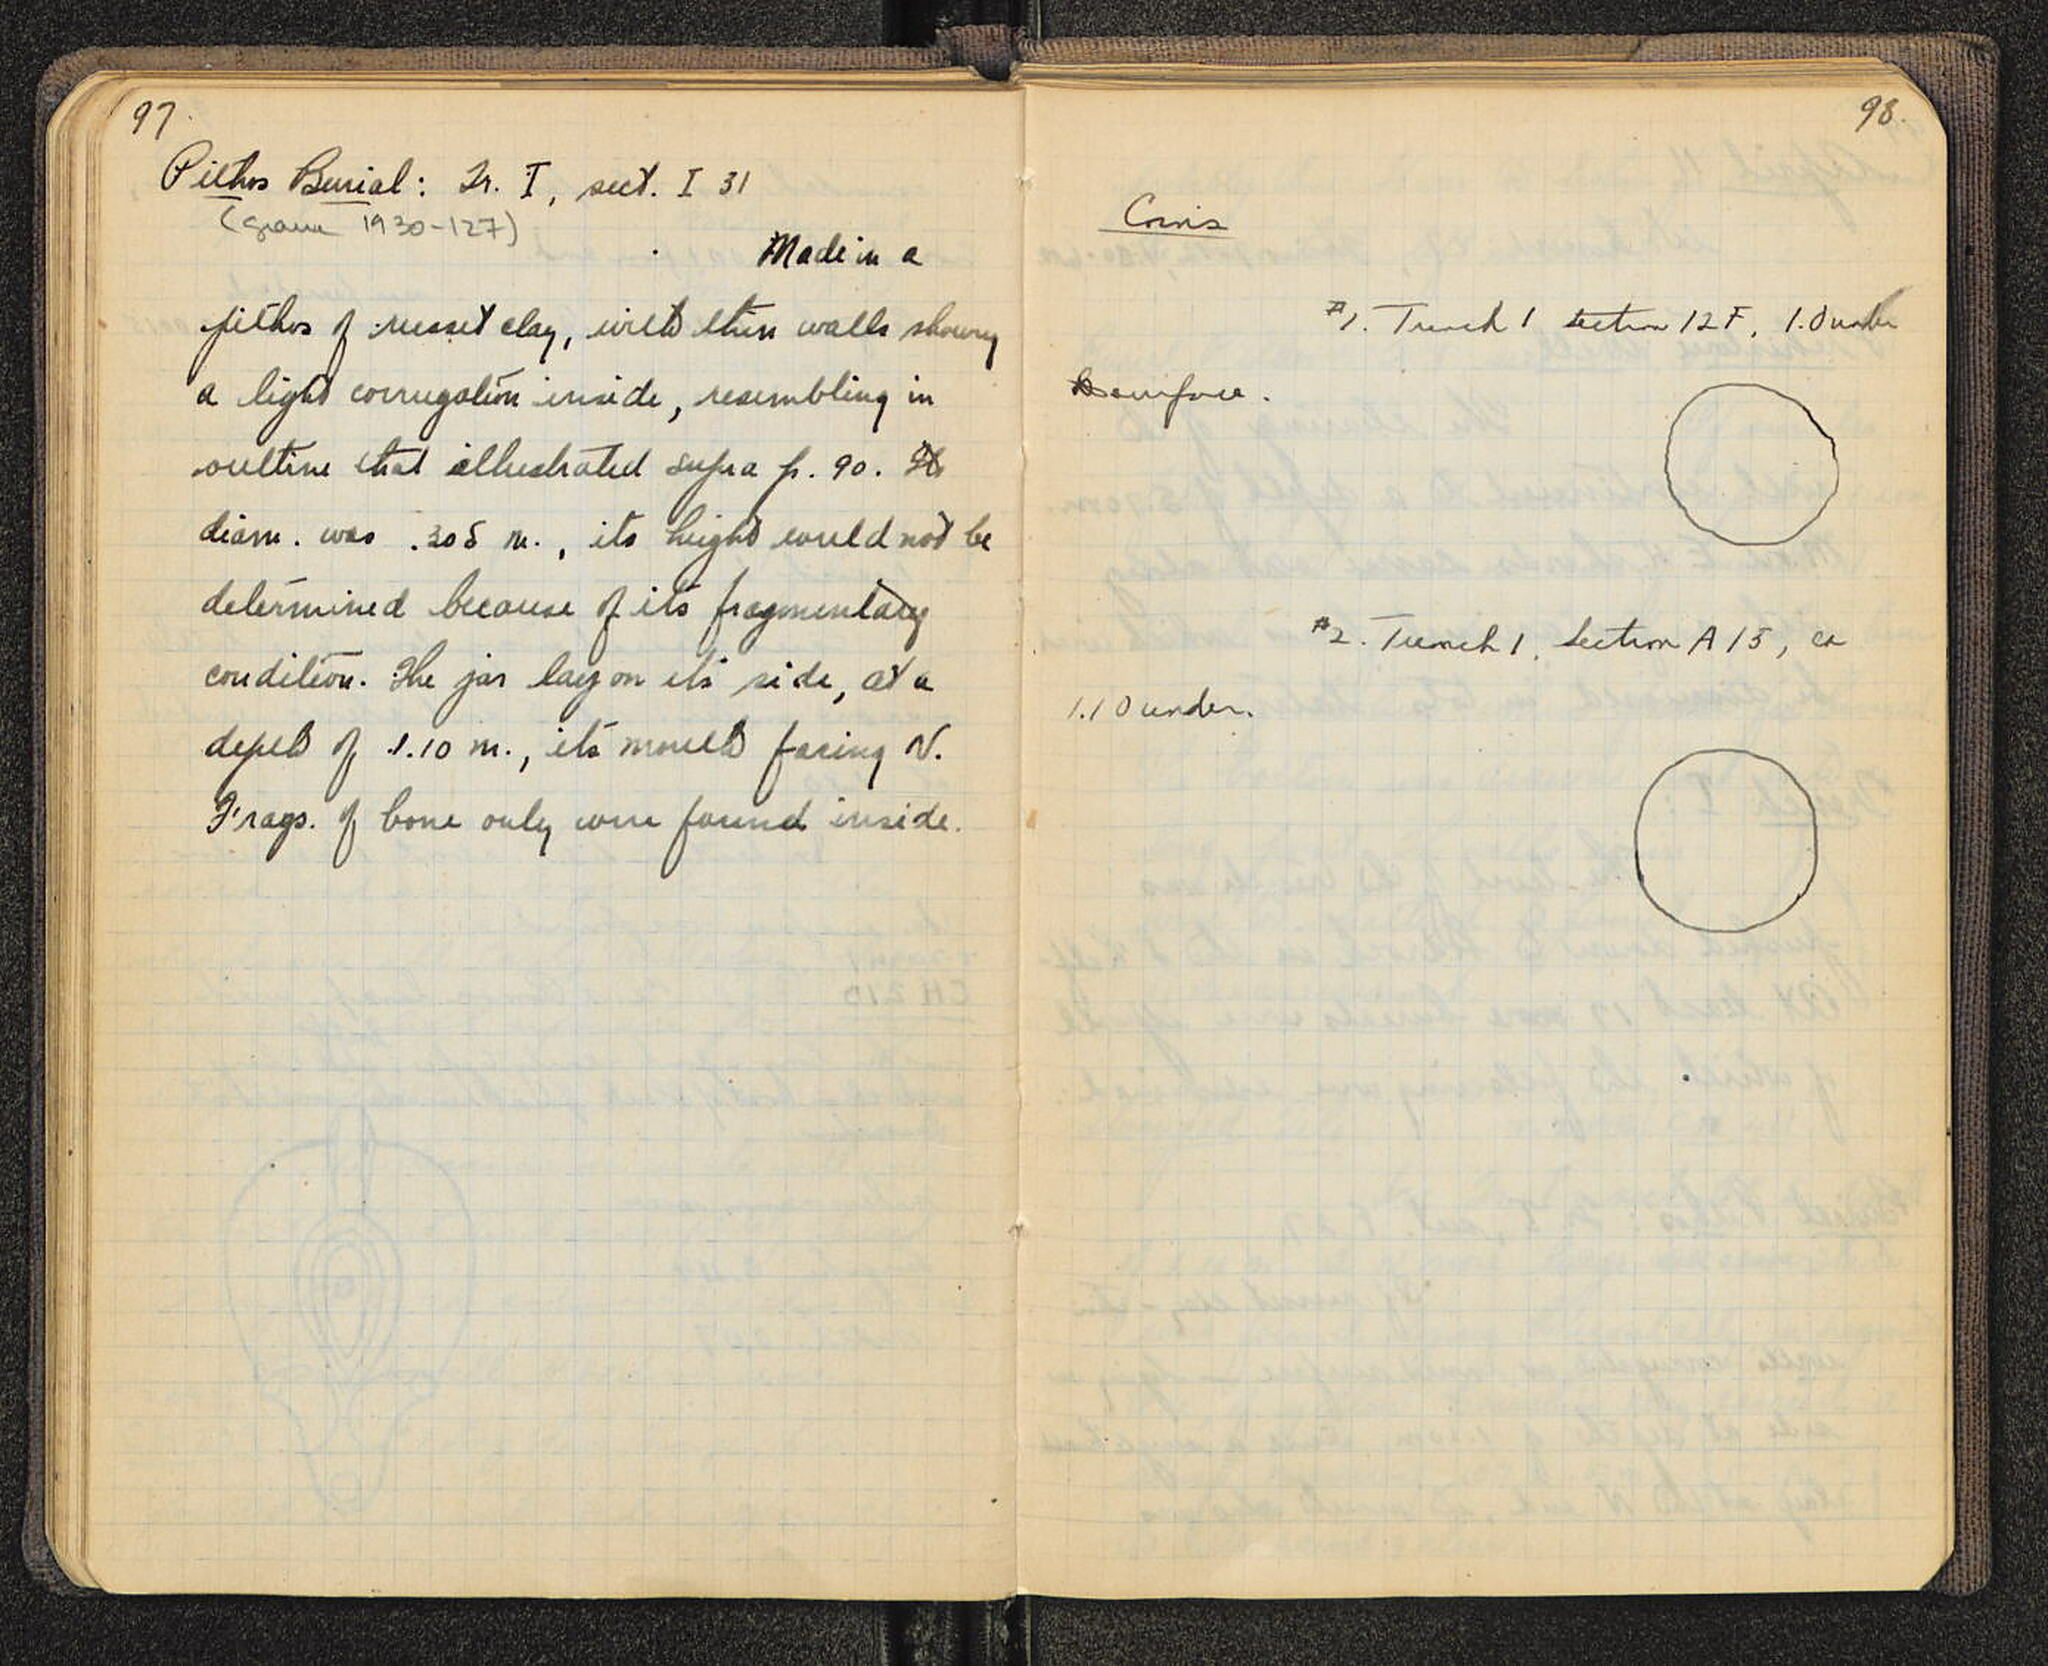 97.
Pithos Burial: Tr. I, sect. I 31
(grave 1930-127)
Made in a
pithos of russet clay, with thin walls showing
a light corrugation inside, resembling in
outline that illustrated supra p. 90. Its
diam. was .305 m., its height could not be
determined because of its fragmentary
condition. The jar lay on its side, at a
depth of 1.10 m., its mouth facing N.
Frags. of bone only were found inside.
98.
Coins
#1. Trench 1 section 12 F, 1.0 under
surface.
#2. Trench 1, section A 15, ca
1.10 under.